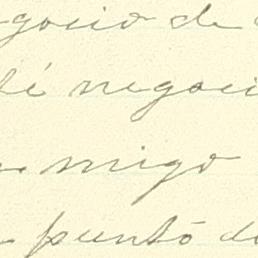 gocio de
té negoci
migo
puntó de